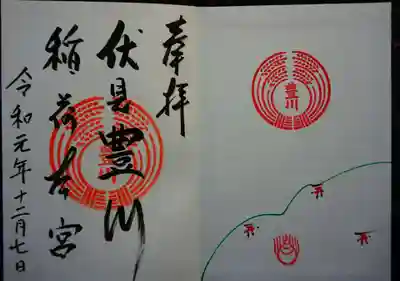 奉拝
伏見豊川
稲荷本宮
令和元年十二月七日
豊川